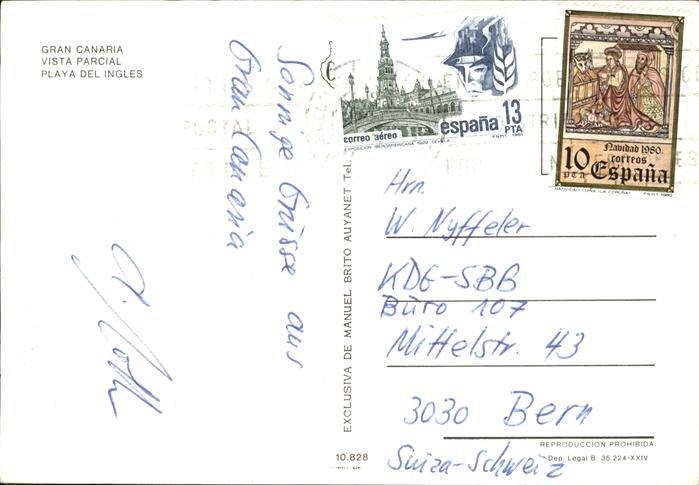 GRAN CANARIA
VISTA PARCIAL
PLAYA DEL INGLES
Sonnige Grüsse aus
Gran Canaria
EXCLUSIVA DE MANUEL BRITO AUYANET Tel.
correo aéreo
españa 13
PTA
EXPOSICION IBEROAMERICANA 1929. SEVILLA
F.N.M.T. 1981
Navidad 1980
correos
10 España
PTA
NATIVIDAD CUIÑA (LA CORUÑA)
F.N.M.T. 1980
Hrn.
W. Nyffeler
KDE-SBB
Büro 107
Mittelstr. 43
3030 Bern
Suiza-Schweiz
REPRODUCCION PROHIBIDA
10.828
Dep. Legal B. 35.224-XXIV